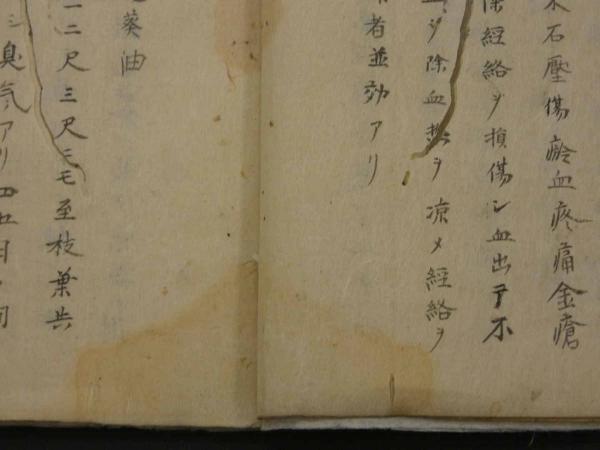 木石壓傷瘀血疼痛金瘡
除經絡ヲ損傷シ血出テ不
ヲ除血熱ヲ凉メ經絡ヲ
者並効アリ
葵油
一二尺三尺ニモ至枝葉共
臭気アリ四五月